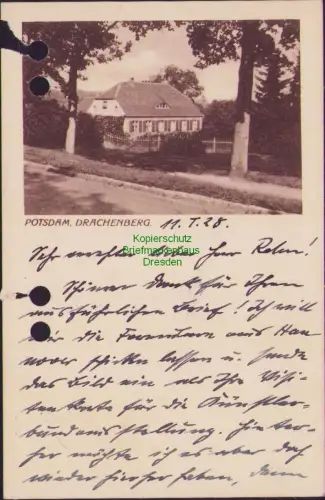 POTSDAM, DRACHENBERG. 11. I. 28.
Kopierschutz
Briefmarkenhaus
Dresden
Sehr verehrter, lieber Herr
Dank für Ihren
ausführlichen Brief! Ich will
mir die Formulare aus Han
nover schicken lassen u. sende
das Bild ein als Ihre Visi
tenkarte für die Künstler
bundausstellung. Hinter-
her möchte ich es aber doch
wieder hierher haben, denn